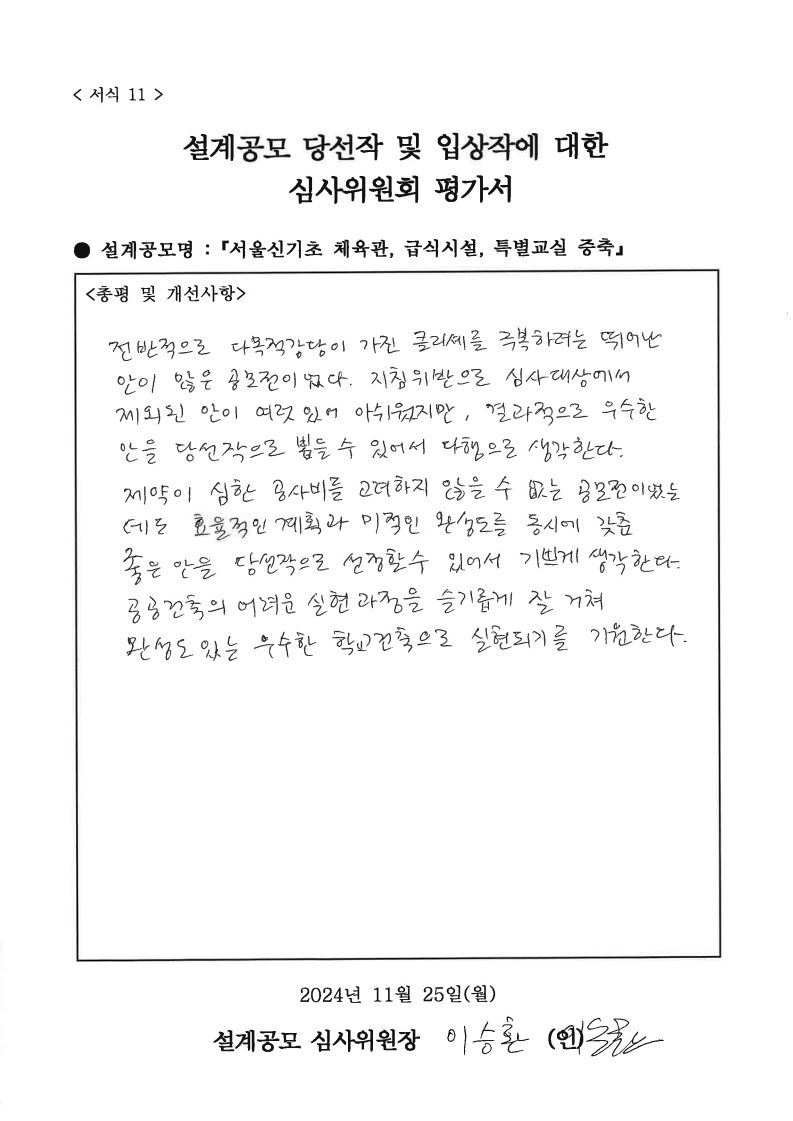 < 서식 11 >
설계공모 당선작 및 입상작에 대한
심사위원회 평가서
● 설계공모명 : 『서울신기초 체육관, 급식시설, 특별교실 증축』
<총평 및 개선사항>
전반적으로 다목적강당이 가진 클리셰를 극복하려는 뛰어난
안이 많은 공모전이었다. 지침위반으로 심사대상에서
제외된 안이 여럿 있어 아쉬웠지만, 결과적으로 우수한
안을 당선작으로 뽑을 수 있어서 다행으로 생각한다.
제약이 심한 공사비를 고려하지 않을 수 없는 공모전이었는
데도 효율적인 계획과 미적인 완성도를 동시에 갖춘
좋은 안을 당선작으로 선정할 수 있어서 기쁘게 생각한다.
공공건축의 어려운 실현과정을 슬기롭게 잘 거쳐
완성도 있는 우수한 학교건축으로 실현되기를 기원한다.
2024년 11월 25일(월)
설계공모 심사위원장 이승환 (인)